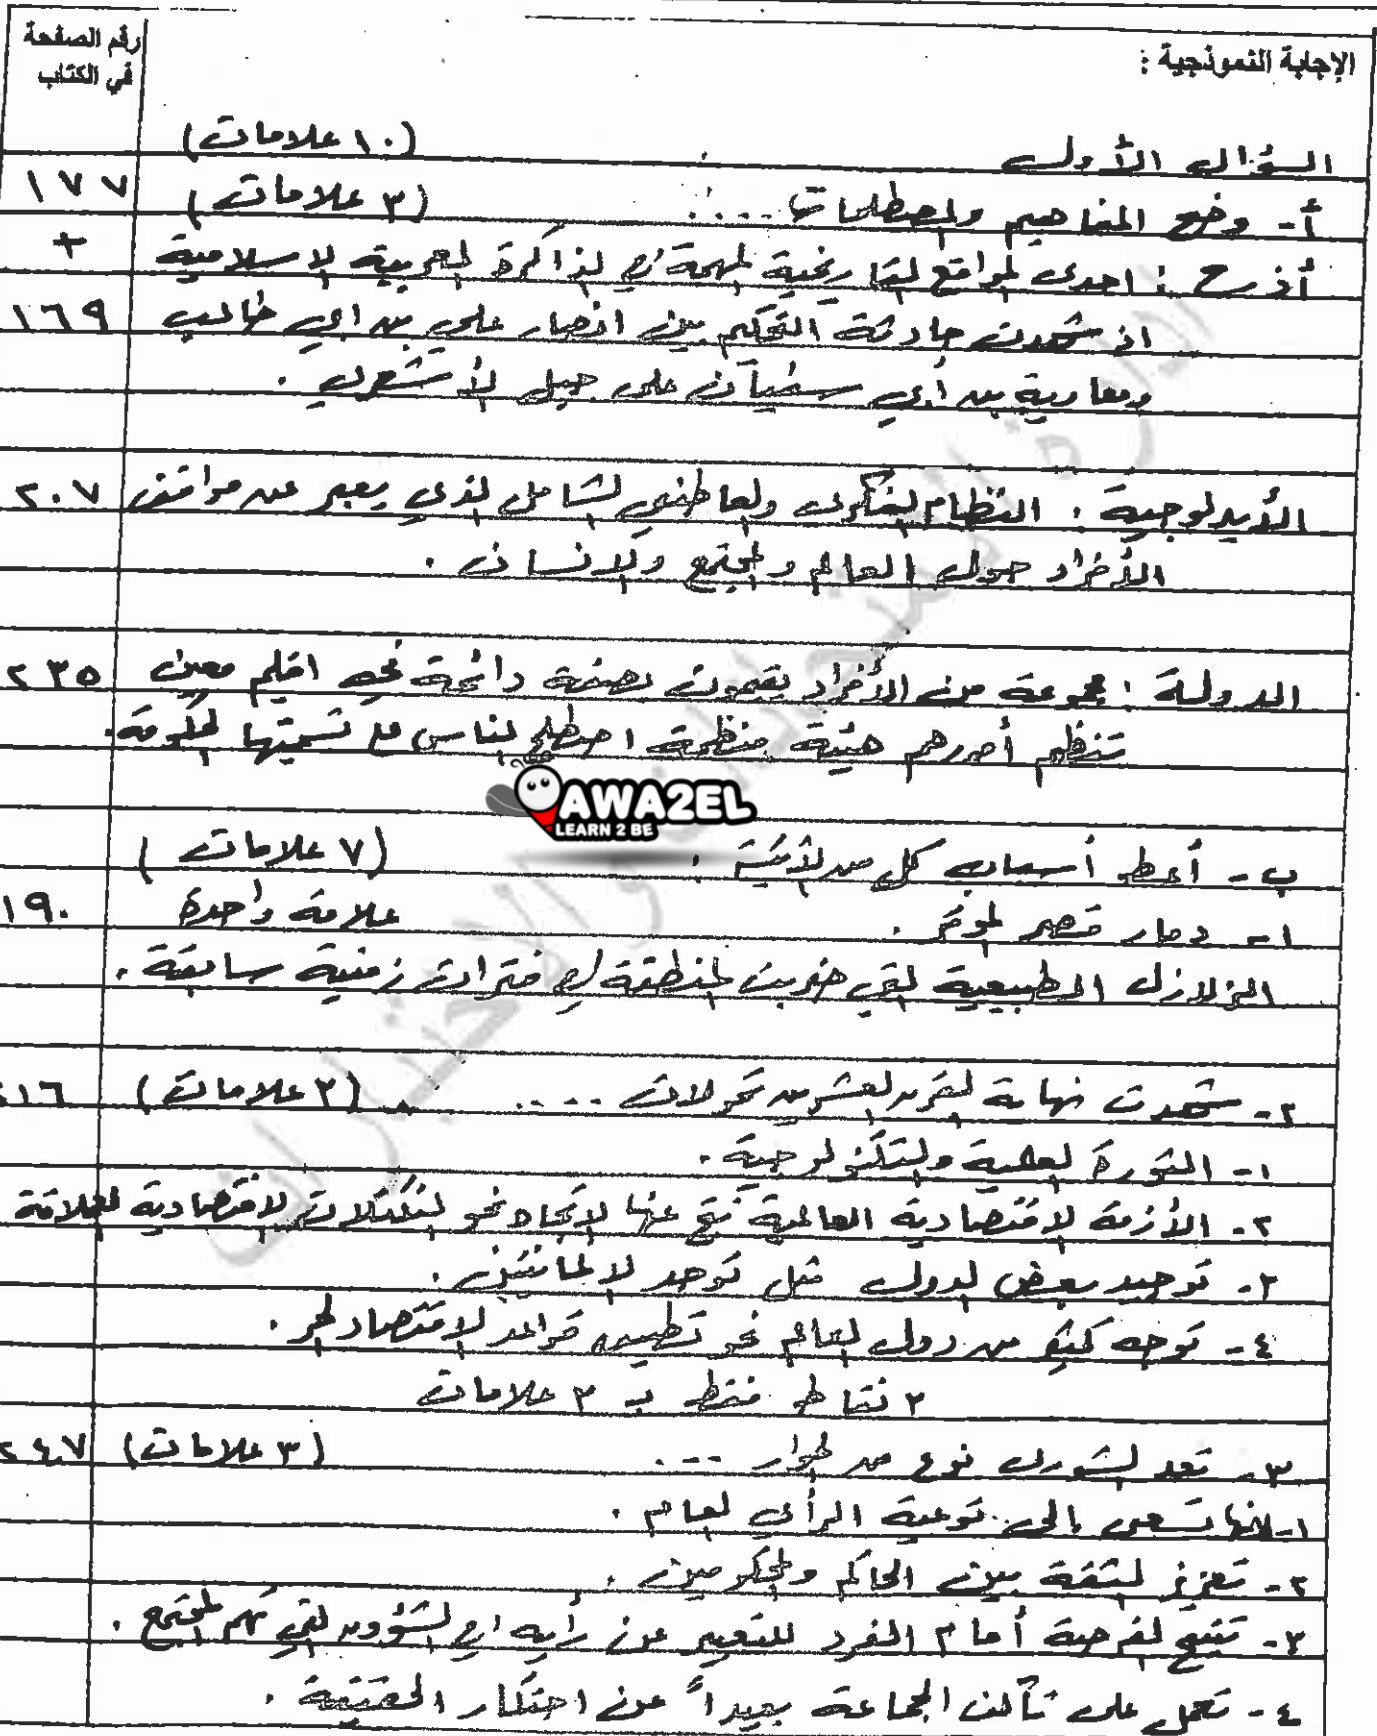 رقم الصفحة
في الكتاب
الإجابة النموذجية :
السؤال الأول (١٠ علامات)
أ- وضح المفاهيم والمصطلحات .... (٣ علامات) ١٧٧
أذرح : احدى المواقع التاريخية المهمة في الذاكرة العربية الاسلامية +
اذ شهدت حادثة التحكيم بين انصار علي بن ابي طالب ١٦٩
ومعاوية بن أبي سفيان على جبل الأشعري .
الأيدلوجية : النظام الفكري والعاطفي الشامل الذي يعبر عن مواقف ٢٠٧
الأفراد حول العالم والمجتمع والانسان .
الدولة : مجموعة من الأفراد يقيمون بصفة دائمة في اقليم معين ٢٣٥
تنظيم أمورهم هيئة منظمة اصطلح الناس على تسميتها الحكومة.
AWA2EL
LEARN 2 BE
ب - أعط أسباب كل من الأتية : (٧ علامات )
١- دمار قصر الموقر . علامة واحدة ١٩٠
الزلازل الطبيعية التي ضربت المنطقة في فترات زمنية سابقة .
٢- شهدت نهاية القرن العشرين تحولات .... (٣ علامات) ٢١٦
١- الثورة العلمية والتكنولوجية .
٢- الأزمة الاقتصادية العالمية نتج عنها الاتجاه نحو التكتلات الاقتصادية العملاقة
٣- توحيد بعض الدول مثل توحد الالمانيتين .
٤- توجه كثير من دول العالم نحو تطبيق قواعد الاقتصاد الحر .
٣ نقاط فقط بـ ٣ علامات
٣- تعد الشورى نوع من الحوار .... (٣ علامات) ٢٤٧
١- لانها تسعى إلى توعية الرأي العام .
٢- تعزيز الثقة بين الحاكم والمحكومين .
٣- تتيح الفرصة أمام الفرد للتعبير عن رأيه في الشؤون التي تهم المجتمع .
٤- تعمل على تآلف الجماعة بعيداً عن احتكار الحقيقة .